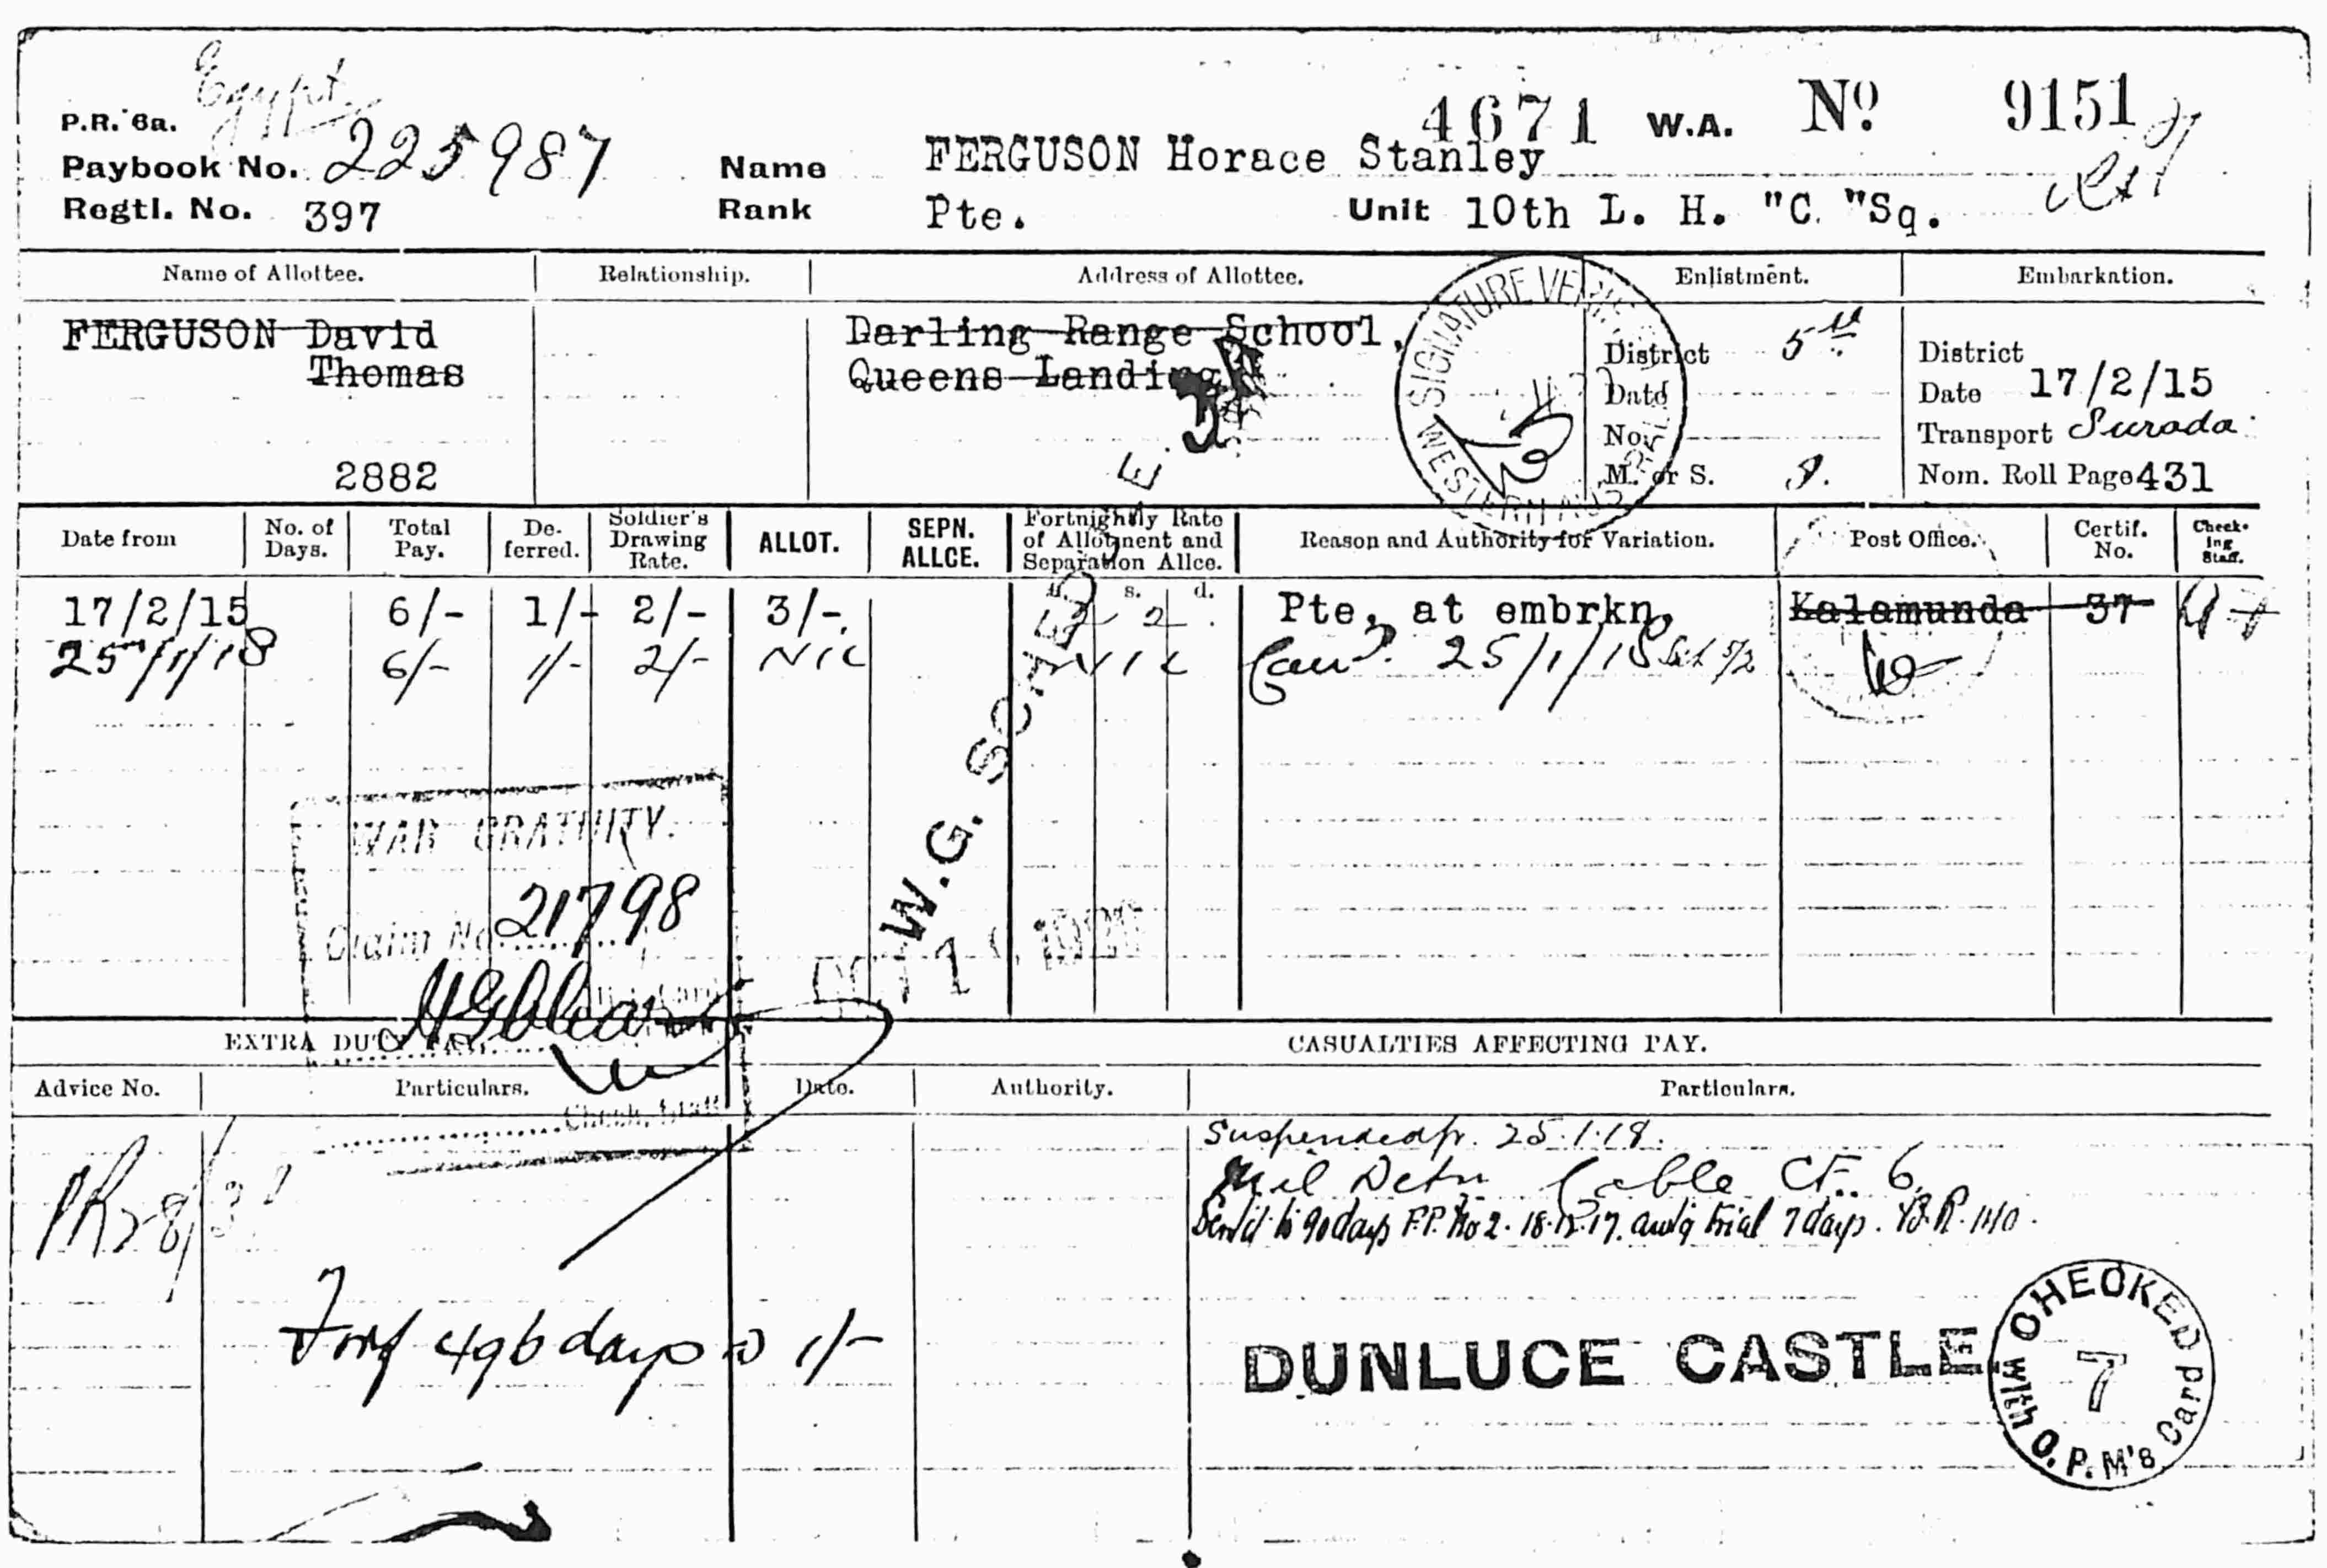 Egypt
P.R. 6a.
4671 W.A. No. 9151
Paybook No. 225987 Name FERGUSON Horace Stanley
Regtl. No. 397 Rank Pte. Unit 10th L. H. "C. "Sq.
Name of Allottee. Relationship. Address of Allottee. Enlistment. Embarkation.
FERGUSON David Thomas
Darling Range School,
Queens Landing
2882
District 5th
Date
No.
M. or S. S.
District
Date 17/2/15
Transport Surada
Nom. Roll Page 431
SIGNATURE
WESTERN
Date from No. of Days. Total Pay. De-ferred. Soldier's Drawing Rate. ALLOT. SEPN. ALLCE. Fortnightly Rate of Allotment and Separation Allce. Reason and Authority for Variation. Post Office. Certif. No. Check-ing Staff.
s. d.
17/2/15 6/- 1/- 2/- 3/-. 2 2. Pte, at embrkn. Kalamunda 37
25/1/18 6/- 1/- 2/- Nil Nil Canc. 25/1/18
W.G. SCHED
WAR GRATUITY.
Claim No. 21798
EXTRA DUTY PAY. CASUALTIES AFFECTING PAY.
Advice No. Particulars. Date. Authority. Particulars.
Check. Staff
Suspended fr. 25.1.18.
Mil Detn Cable CF. 6
Sent'd to 90 days F.P. No 2. 18.12.17. awtg trial 7 days. B.R. 1110.
Forf 496 days @ 1/-
DUNLUCE CASTLE
CHECKED
7
with O.P.M's Card